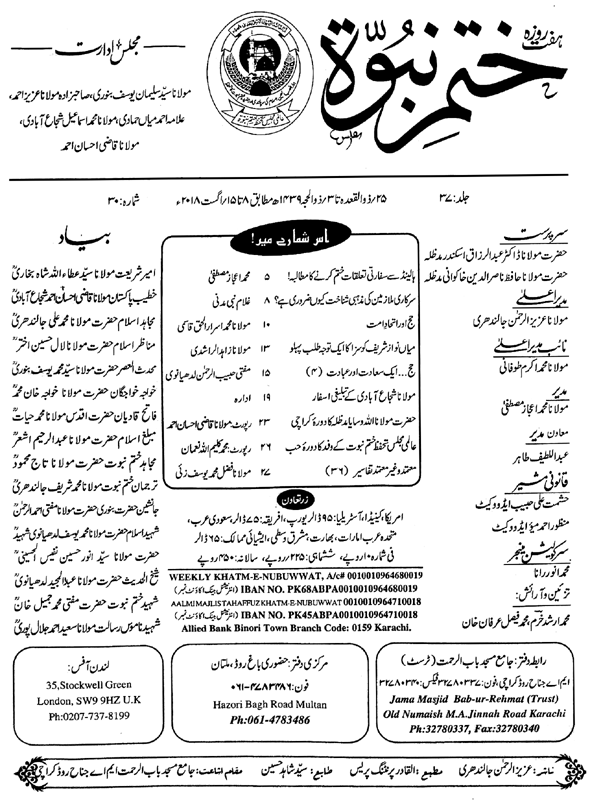 ہفت روزہ
ختم نبوۃ
مجلس ادارت
مولانا سیّد سلیمان یوسف بنوری، صاحبزادہ مولانا عزیز احمد،
علامہ احمد میاں حمادی، مولانا محمد اسماعیل شجاع آبادی،
مولانا قاضی احسان احمد
جلد: ۳۷
۲۵؍ذوالقعدہ تا ۳؍ذوالحجہ ۱۴۳۹ھ مطابق ۸ تا ۱۵؍اگست ۲۰۱۸ء
شمارہ: ۳۰
سرپرست
حضرت مولانا ڈاکٹر عبدالرزاق اسکندر مدظلہ
حضرت مولانا حافظ ناصر الدین خاکوانی مدظلہ
مدیر اعلیٰ
مولانا عزیز الرحمٰن جالندھری
نائب مدیر اعلیٰ
مولانا محمد اکرم طوفانی
مدیر
مولانا محمد اعجاز مصطفیٰ
معاون مدیر
عبداللطیف طاہر
قانونی مشیر
حشمت علی حبیب ایڈووکیٹ
منظور احمد میؤ ایڈووکیٹ
سرکولیشن منیجر
محمد انور رانا
تزئین و آرائش:
محمد ارشد خرم، محمد فیصل عرفان خان
اس شمارے میں!
ہالینڈ سے سفارتی تعلقات ختم کرنے کا مطالبہ! ۵ محمد اعجاز مصطفیٰ
سرکاری ملازمین کی مذہبی شناخت کیوں ضروری ہے؟ ۸ غلام نبی مدنی
حج اور اتحادِ امت ۱۰ مولانا محمد اسرار الحق قاسمی
میاں نواز شریف کو سزا کا ایک توجہ طلب پہلو ۱۳ مولانا زاہد الراشدی
حج... ایک سعادت اور عبادت (۴) ۱۵ مفتی حبیب الرحمٰن لدھیانوی
مولانا شجاع آبادی کے تبلیغی اسفار ۱۹ ادارہ
حضرت مولانا اللہ وسایا مدظلہ کا دورۂ کراچی ۲۳ رپورٹ: مولانا قاضی احسان احمد
عالمی مجلس تحفظ ختم نبوت کے وفد کا دورۂ حب ۲۶ رپورٹ: محمد کلیم اللہ نعمان
معتمد و غیر معتمد تفاسیر (۳۶) ۲۷ مولانا فضل محمد یوسف زئی
زرِ تعاون
امریکا، کینیڈا، آسٹریلیا: ۹۵ ڈالر یورپ، افریقہ: ۷۵ ڈالر سعودی عرب،
متحدہ عرب امارات، بھارت، مشرق وسطیٰ، ایشیائی ممالک: ۶۵ ڈالر
فی شمارہ ۱۰ روپے، ششماہی: ۲۲۵ روپے، سالانہ: ۴۵۰ روپے
WEEKLY KHATM-E-NUBUWWAT, A/c# 0010010964680019
IBAN NO. PK68ABPA0010010964680019 (انٹرنیشنل بینک اکاؤنٹ نمبر)
AALMI MAJLIS TAHAFFUZ KHATM-E-NUBUWWAT 0010010964710018
IBAN NO. PK45ABPA0010010964710018 (انٹرنیشنل بینک اکاؤنٹ نمبر)
Allied Bank Binori Town Branch Code: 0159 Karachi.
بیاد
امیر شریعت مولانا سیّد عطاء اللہ شاہ بخاریؒ
خطیب پاکستان مولانا قاضی احسان احمد شجاع آبادیؒ
مجاہد اسلام حضرت مولانا محمد علی جالندھریؒ
مناظر اسلام حضرت مولانا لال حسین اخترؒ
محدث العصر حضرت مولانا سیّد محمد یوسف بنوریؒ
خواجۂ خواجگان حضرت مولانا خواجہ خان محمدؒ
فاتح قادیان حضرت اقدس مولانا محمد حیاتؒ
مبلغ اسلام حضرت مولانا عبدالرحیم اشعرؒ
مجاہد ختم نبوت حضرت مولانا تاج محمودؒ
ترجمان ختم نبوت حضرت مولانا محمد شریف جالندھریؒ
جانشین حضرت بنوری حضرت مولانا مفتی احمد الرحمٰنؒ
شہید اسلام حضرت مولانا محمد یوسف لدھیانوی شہیدؒ
حضرت مولانا سیّد انور حسین نفیس الحسینیؒ
شیخ الحدیث حضرت مولانا عبدالمجید لدھیانویؒ
شہید ختم نبوت حضرت مفتی محمد جمیل خانؒ
شہید ناموس رسالت مولانا سعید احمد جلال پوریؒ
رابطہ دفتر: جامع مسجد باب الرحمت (ٹرسٹ)
ایم اے جناح روڈ کراچی، فون: ۳۲۷۸۰۳۳۷، فیکس: ۳۲۷۸۰۳۴۰
Jama Masjid Bab-ur-Rehmat (Trust)
Old Numaish M.A.Jinnah Road Karachi
Ph:32780337, Fax:32780340
مرکزی دفتر: حضوری باغ روڈ، ملتان
فون: ۰۶۱-۴۷۸۳۴۸۶
Hazori Bagh Road Multan
Ph:061-4783486
لندن آفس:
35,Stockwell Green
London, SW9 9HZ U.K
Ph:0207-737-8199
ناشر: عزیز الرحمٰن جالندھری مطبع: القادر پرنٹنگ پریس طابع: سیّد شاہد حسین مقام اشاعت: جامع مسجد باب الرحمت ایم اے جناح روڈ کراچی